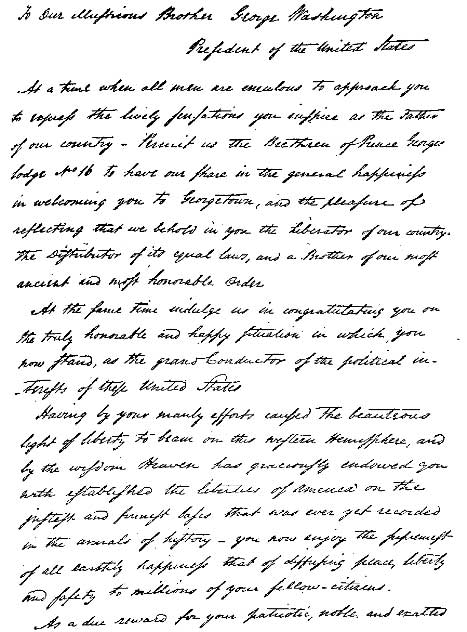 To Our Illustrious Brother George Washington
President of the United States
At a time when all men are emulous to approach you
to express the lively sensations you inspire as the Father
of our country – Permit us the Brethren of Prince Georges
lodge No 16 to have our share in the general happiness
in welcoming you to Georgetown, and the pleasure of
reflecting that we behold in you the liberator of our country.
the Distributor of its equal laws, and a Brother of our most
ancient and most honorable Order
At the same time indulge us in congratulating you on
the truly honorable and happy situation in which you
now stand, as the grand Conductor of the political in-
-terests of these United States
Having by your manly efforts caused the beauteous
light of liberty to beam on this western Hemisphere, and
by the wisdom Heaven has graciously endowed you
with established the liberties of America on the
justest and firmest basis that was ever yet recorded
in the annals of history – you now enjoy the supremest
of all earthly happiness that of diffusing peace, liberty
and safety to millions of your fellow-citizens.
As a due reward for your patriotic, noble and exalted